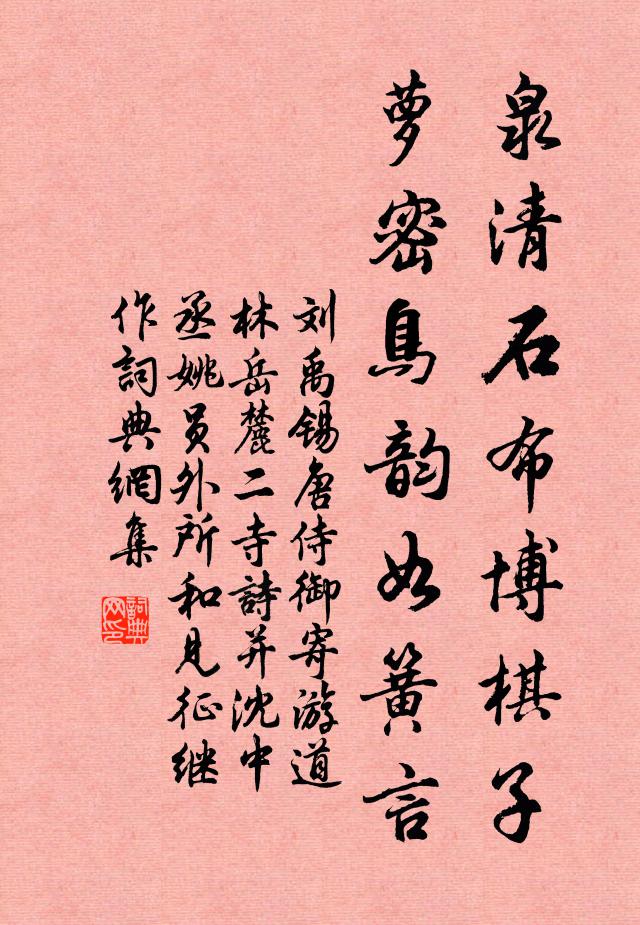 泉清石布博棋子
萝密鳥韵如簧言
刘禹锡唐侍御寄游道
林岳麓二寺詩并沈中
丞姚員外所和見征继
作詞典網集
詞典网印